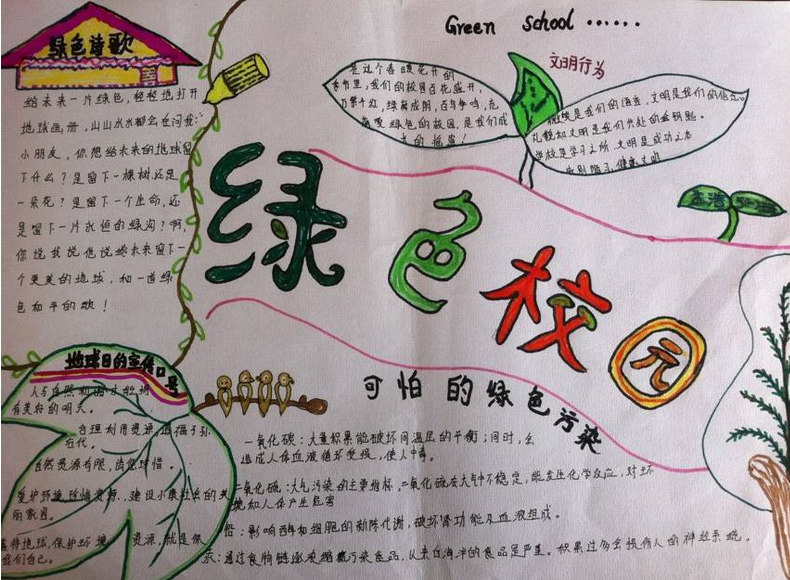 Green School ......
绿色诗歌
给未来一片绿色,轻轻地打开
地球画册,山山水水都会也问我:
小朋友,你想给未来的地球留
下什么?是留下一棵树,还是
一朵花?是留下一个生命,还
是留下一片永恒的绿洶?啊,
你说我说他说给未来留下一
个更美的地球,和一首绿
色和平的歌!
是这个春暖花开的
季节里,我们的校园百花盛开,
万紫千红,绿树成阴,百鸟争鸣,
绿色的校园,是我们成
文明行为
是我们的语言,文明是我们的信念
礼貌和文明是我们共处的金钥匙。
学校是学习之所 文明是成功之本
绿色校园
地球日的宣传口号
人与自然和
有美好的明天。
合理利用资源,造福子孙
后代。
自然资源有限,请您珍惜。
爱护环境,珍惜资源,建设小康社会的美
丽家园。
地球,保护环境 资源,就是保
我们自己。
可怕的绿色污染
一氧化碳:大量积累能破坏同温层的平衡;同时,会
造成人体血液循环受损,使人中毒。
二氧化硫:大气污染的主要指标,二氧化硫在大气中不稳定,能发生化学反应,对环
境和人体产生危害
铅:影响酶和细胞的新陈代谢,破坏肾功能及血液组成。
汞:通过食物链逐步污染食品,以来自海洋的食品多严重。积累过多会损伤人的神经系统。